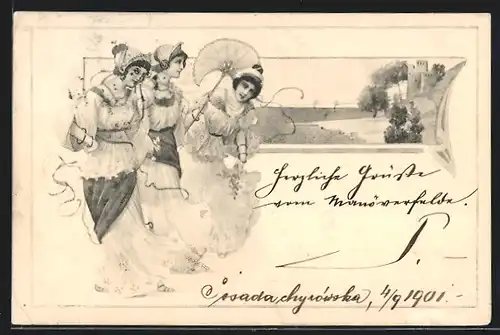 Herzliche Grüße
vom Manöverfelde.
P.
Posada chyrówska, 4/9 1901.